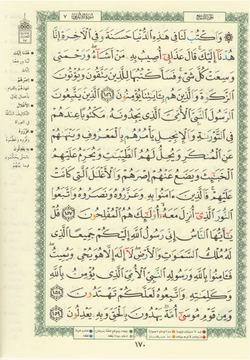 وَاكْتُبْ لَنَا فِي هَٰذِهِ الدُّنْيَا حَسَنَةً وَفِي الْآخِرَةِ إِنَّا
هُدْنَا إِلَيْكَ قَالَ عَذَابِي أُصِيبُ بِهِ مَنْ أَشَاءُ وَرَحْمَتِي
وَسِعَتْ كُلَّ شَيْءٍ فَسَأَكْتُبُهَا لِلَّذِينَ يَتَّقُونَ وَيُؤْتُونَ
الزَّكَوٰةَ وَالَّذِينَ هُم بِآيَاتِنَا يُؤْمِنُونَ ١٥٦ الَّذِينَ يَتَّبِعُونَ
الرَّسُولَ النَّبِيَّ الْأُمِّيَّ الَّذِي يَجِدُونَهُ مَكْتُوبًا عِندَهُمْ
فِي التَّوْرَىٰةِ وَالْإِنجِيلِ يَأْمُرُهُم بِالْمَعْرُوفِ وَيَنْهَىٰهُمْ
عَنِ الْمُنكَرِ وَيُحِلُّ لَهُمُ الطَّيِّبَٰتِ وَيُحَرِّمُ عَلَيْهِمُ
الْخَبَٰئِثَ وَيَضَعُ عَنْهُمْ إِصْرَهُمْ وَالْأَغْلَٰلَ الَّتِي كَانَتْ
عَلَيْهِمْ فَالَّذِينَ ءَامَنُوا بِهِ وَعَزَّرُوهُ وَنَصَرُوهُ وَاتَّبَعُوا
النُّورَ الَّذِي أُنزِلَ مَعَهُ أُولَٰئِكَ هُمُ الْمُفْلِحُونَ ١٥٧ قُلْ
يَٰأَيُّهَا النَّاسُ إِنِّي رَسُولُ اللَّهِ إِلَيْكُمْ جَمِيعًا الَّذِي
لَهُ مُلْكُ السَّمَٰوَٰتِ وَالْأَرْضِ لَا إِلَٰهَ إِلَّا هُوَ يُحْيِي وَيُمِيتُ
فَـَٔامِنُوا بِاللَّهِ وَرَسُولِهِ النَّبِيِّ الْأُمِّيِّ الَّذِي يُؤْمِنُ بِاللَّهِ
وَكَلِمَٰتِهِ وَاتَّبِعُوهُ لَعَلَّكُمْ تَهْتَدُونَ ١٥٨
وَمِن قَوْمِ مُوسَىٰ أُمَّةٌ يَهْدُونَ بِالْحَقِّ وَبِهِ يَعْدِلُونَ ١٥٩
١٧٠